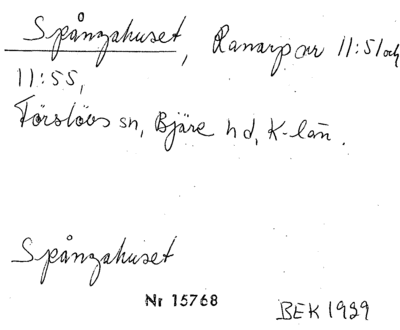 Spångahuset, Ranarp nr 11:51 och
11:55,
Förslövs sn, Bjäre hd, K-län.
Spångahuset
Nr 15768
BEK 1929